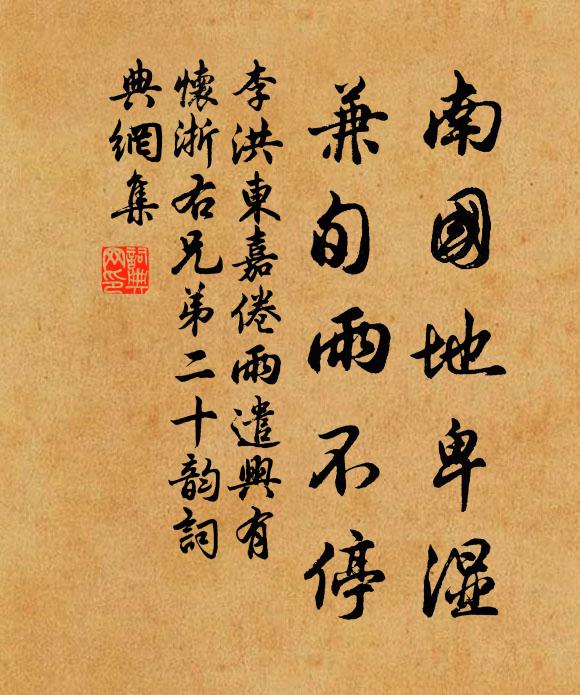 南國地卑濕
兼旬雨不停
李洪東嘉倦雨遣興有
懷浙右兄弟二十韵詞
典網集
詞典网印